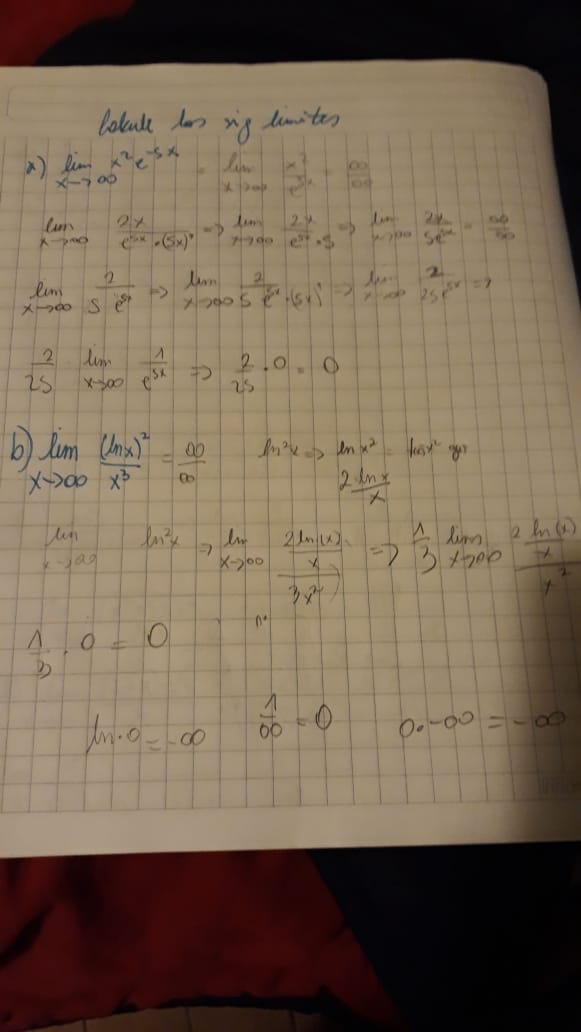 los sig limites
a) lim x→∞ x² e^-5x = lim x→∞ x²/e^5x = ∞/∞
lim x→∞ 2x/(e^5x · (5x)') => lim x→∞ 2x/(e^5x · 5) => lim x→∞ 2x/5e^5x = ∞/∞
lim x→∞ 2/(5 e^5x) => lim x→∞ 2/(5 e^5x · (5x)') => lim x→∞ 2/25e^5x =>
2/25 lim x→∞ 1/e^5x => 2/25 · 0 = 0
b) lim x→∞ (ln x)²/x³ = ∞/∞ ln²x => ln x²
2 ln x/x
lim x→∞ ln²x => lim x→∞ (2 ln(x)/x)/3x² => 1/3 lim x→∞ (2 ln(x)/x)/x²
1/3 · 0 = 0
ln · 0 = -∞ 1/∞ = 0 0 · -∞ = -∞